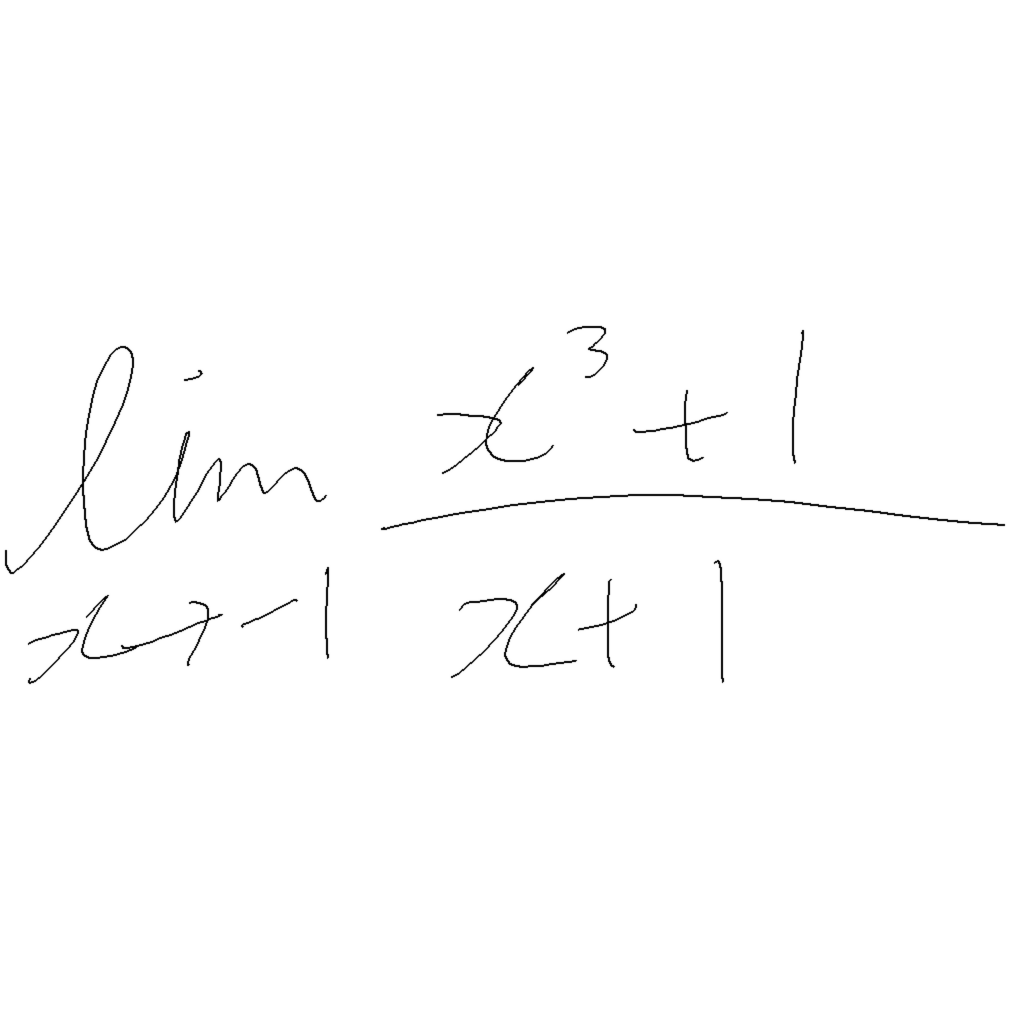 lim x³+1
x→-1 x+1